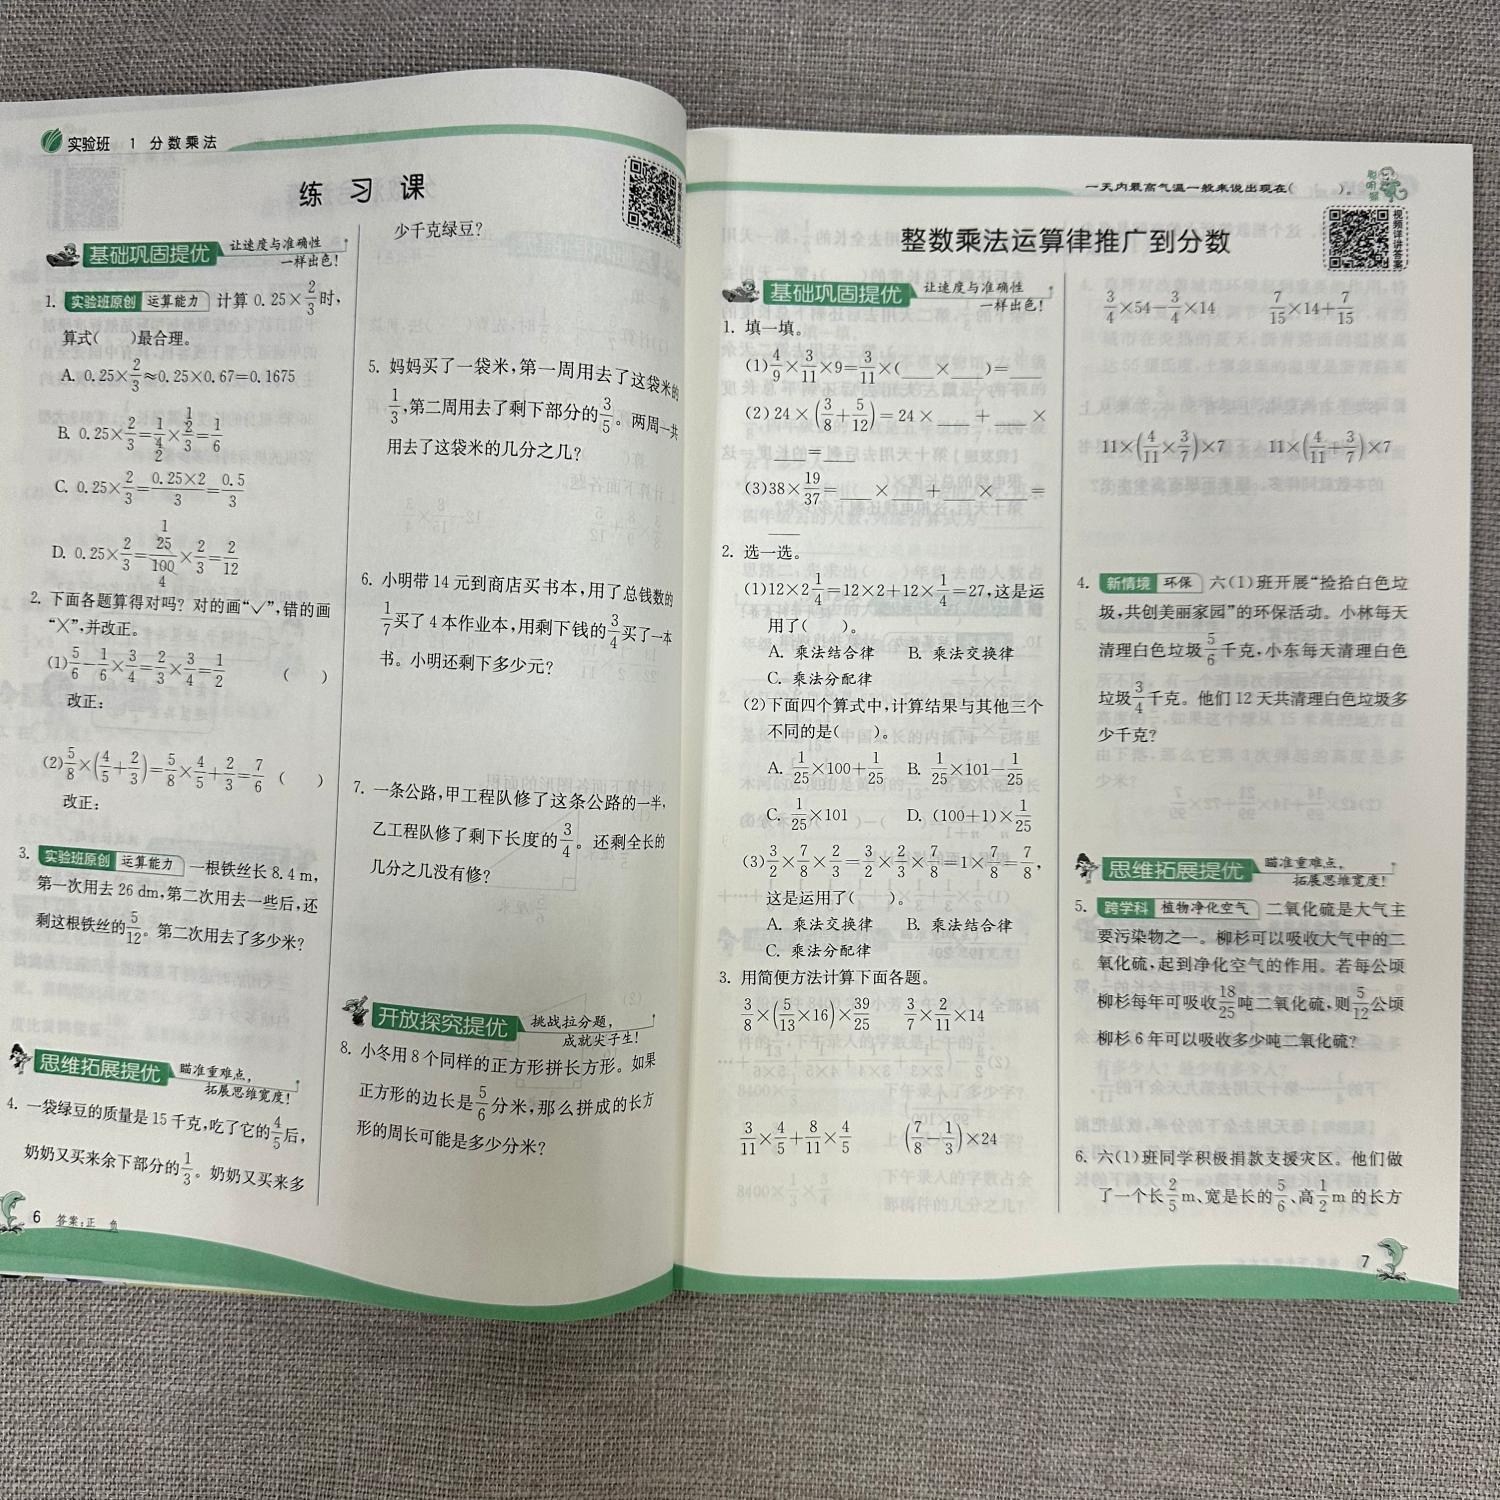 实验班 1 分数乘法
练习课
基础巩固提优 让速度与准确性
一样出色!
1. 实验班原创 运算能力 计算 0.25×2/3时,
算式( )最合理。
A. 0.25×2/3≈0.25×0.67=0.1675
B. 0.25×2/3=1/4×2/3=1/6
1
2
C. 0.25×2/3=0.25×2/3=0.5/3
D. 0.25×2/3=25/100×2/3=2/12
1
4
2. 下面各题算得对吗? 对的画“✓”,错的画
“×”,并改正。
(1)5/6-1/6×3/4=2/3×3/4=1/2 ( )
改正:
(2)5/8×(4/5+2/3)=5/8×4/5+2/3=7/6 ( )
改正:
3. 实验班原创 运算能力 一根铁丝长 8.4 m,
第一次用去 26 dm,第二次用去一些后,还
剩这根铁丝的5/12。第二次用去了多少米?
思维拓展提优 瞄准重难点,
拓展思维宽度!
4. 一袋绿豆的质量是 15 千克,吃了它的4/5后,
奶奶又买来余下部分的1/3。奶奶又买来多
6 答案:正 负
少千克绿豆?
5. 妈妈买了一袋米,第一周用去了这袋米的
1/3,第二周用去了剩下部分的3/5。两周一共
用去了这袋米的几分之几?
6. 小明带 14 元到商店买书本,用了总钱数的
1/7买了 4 本作业本,用剩下钱的3/4买了一本
书。小明还剩下多少元?
7. 一条公路,甲工程队修了这条公路的一半,
乙工程队修了剩下长度的3/4。还剩全长的
几分之几没有修?
开放探究提优 挑战拉分题,
成就尖子生!
8. 小冬用 8 个同样的正方形拼长方形。如果
正方形的边长是5/6分米,那么拼成的长方
形的周长可能是多少分米?
一天内最高气温一般来说出现在( )。
聪明屋
视频详讲答案
整数乘法运算律推广到分数
基础巩固提优 让速度与准确性
一样出色!
1. 填一填。
(1)4/9×3/11×9=3/11×( × )=
(2)24×(3/8+5/12)=24×___+___×
___=___
(3)38×19/37=___×___+___×___=
___
2. 选一选。
(1)12×2 1/4=12×2+12×1/4=27,这是运
用了( )。
A. 乘法结合律 B. 乘法交换律
C. 乘法分配律
(2)下面四个算式中,计算结果与其他三个
不同的是( )。
A. 1/25×100+1/25 B. 1/25×101-1/25
C. 1/25×101 D. (100+1)×1/25
(3)3/2×7/8×2/3=3/2×2/3×7/8=1×7/8=7/8,
这是运用了( )。
A. 乘法交换律 B. 乘法结合律
C. 乘法分配律
3. 用简便方法计算下面各题。
3/8×(5/13×16)×39/25 3/7×2/11×14
3/11×4/5+8/11×4/5 (7/8-1/3)×24
3/4×54-3/4×14 7/15×14+7/15
11×(4/11×3/7)×7 11×(4/11+3/7)×7
4. 新情境 环保 六(1)班开展“捡拾白色垃
圾,共创美丽家园”的环保活动。小林每天
清理白色垃圾5/6千克,小东每天清理白色
垃圾3/4千克。他们 12 天共清理白色垃圾多
少千克?
思维拓展提优 瞄准重难点,
拓展思维宽度!
5. 跨学科 植物净化空气 二氧化硫是大气主
要污染物之一。柳杉可以吸收大气中的二
氧化硫,起到净化空气的作用。若每公顷
柳杉每年可吸收18/25吨二氧化硫,则5/12公顷
柳杉 6 年可以吸收多少吨二氧化硫?
6. 六(1)班同学积极捐款支援灾区。他们做
了一个长2/5 m、宽是长的5/6、高1/2 m 的长方
7